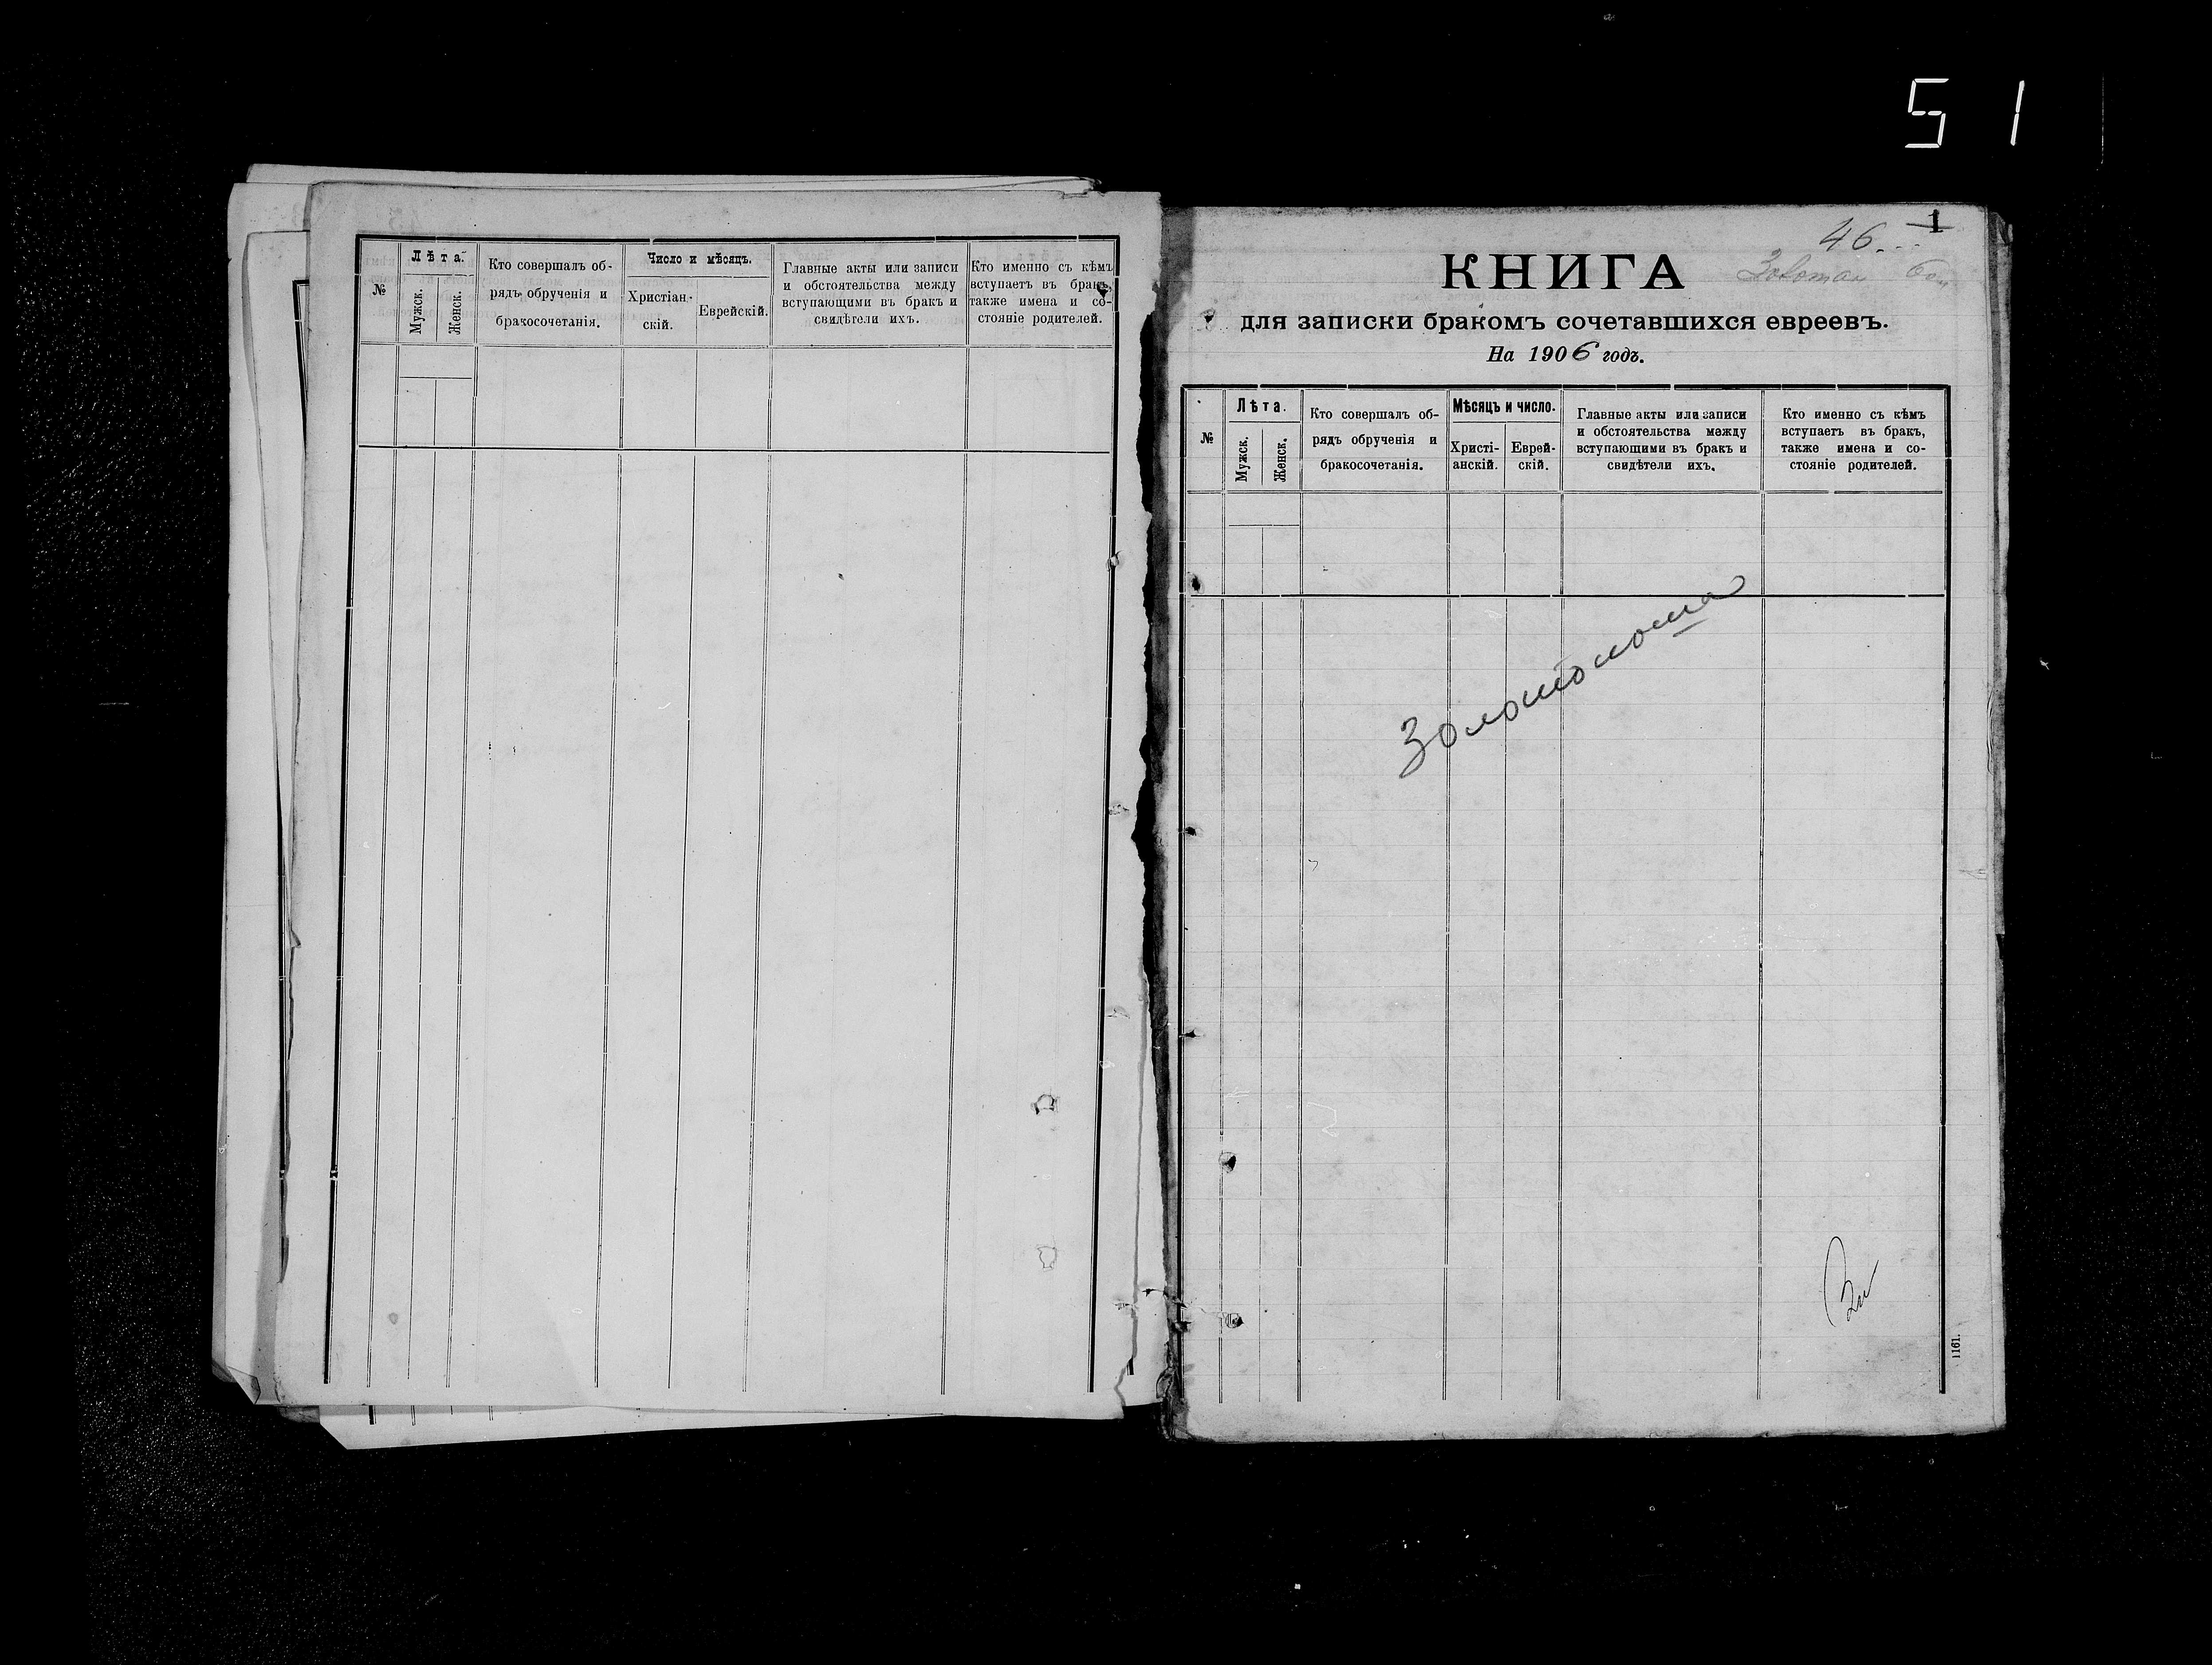 51
№
Лѣта.
Мужск.
Женск.
Кто совершалъ об-
рядъ обрученія и
бракосочетанія.
Число и мѣсяцъ.
Христіан-
скій.
Еврейскій.
Главные акты или записи
и обстоятельства между
вступающими въ бракъ и
свидѣтели ихъ.
Кто именно съ кѣмъ
вступаетъ въ бракъ,
также имена и со-
стояніе родителей.
1
46.
КНИГА
для записки бракомъ сочетавшихся евреевъ.
На 1906 годъ.
№
Лѣта.
Мужск.
Женск.
Кто совершалъ об-
рядъ обрученія и
бракосочетанія.
Мѣсяцъ и число.
Христі-
анскій.
Еврей-
скій.
Главные акты или записи
и обстоятельства между
вступающими въ бракъ и
свидѣтели ихъ.
Кто именно съ кѣмъ
вступаетъ въ бракъ,
также имена и со-
стояніе родителей.
Золотоноша
1161.